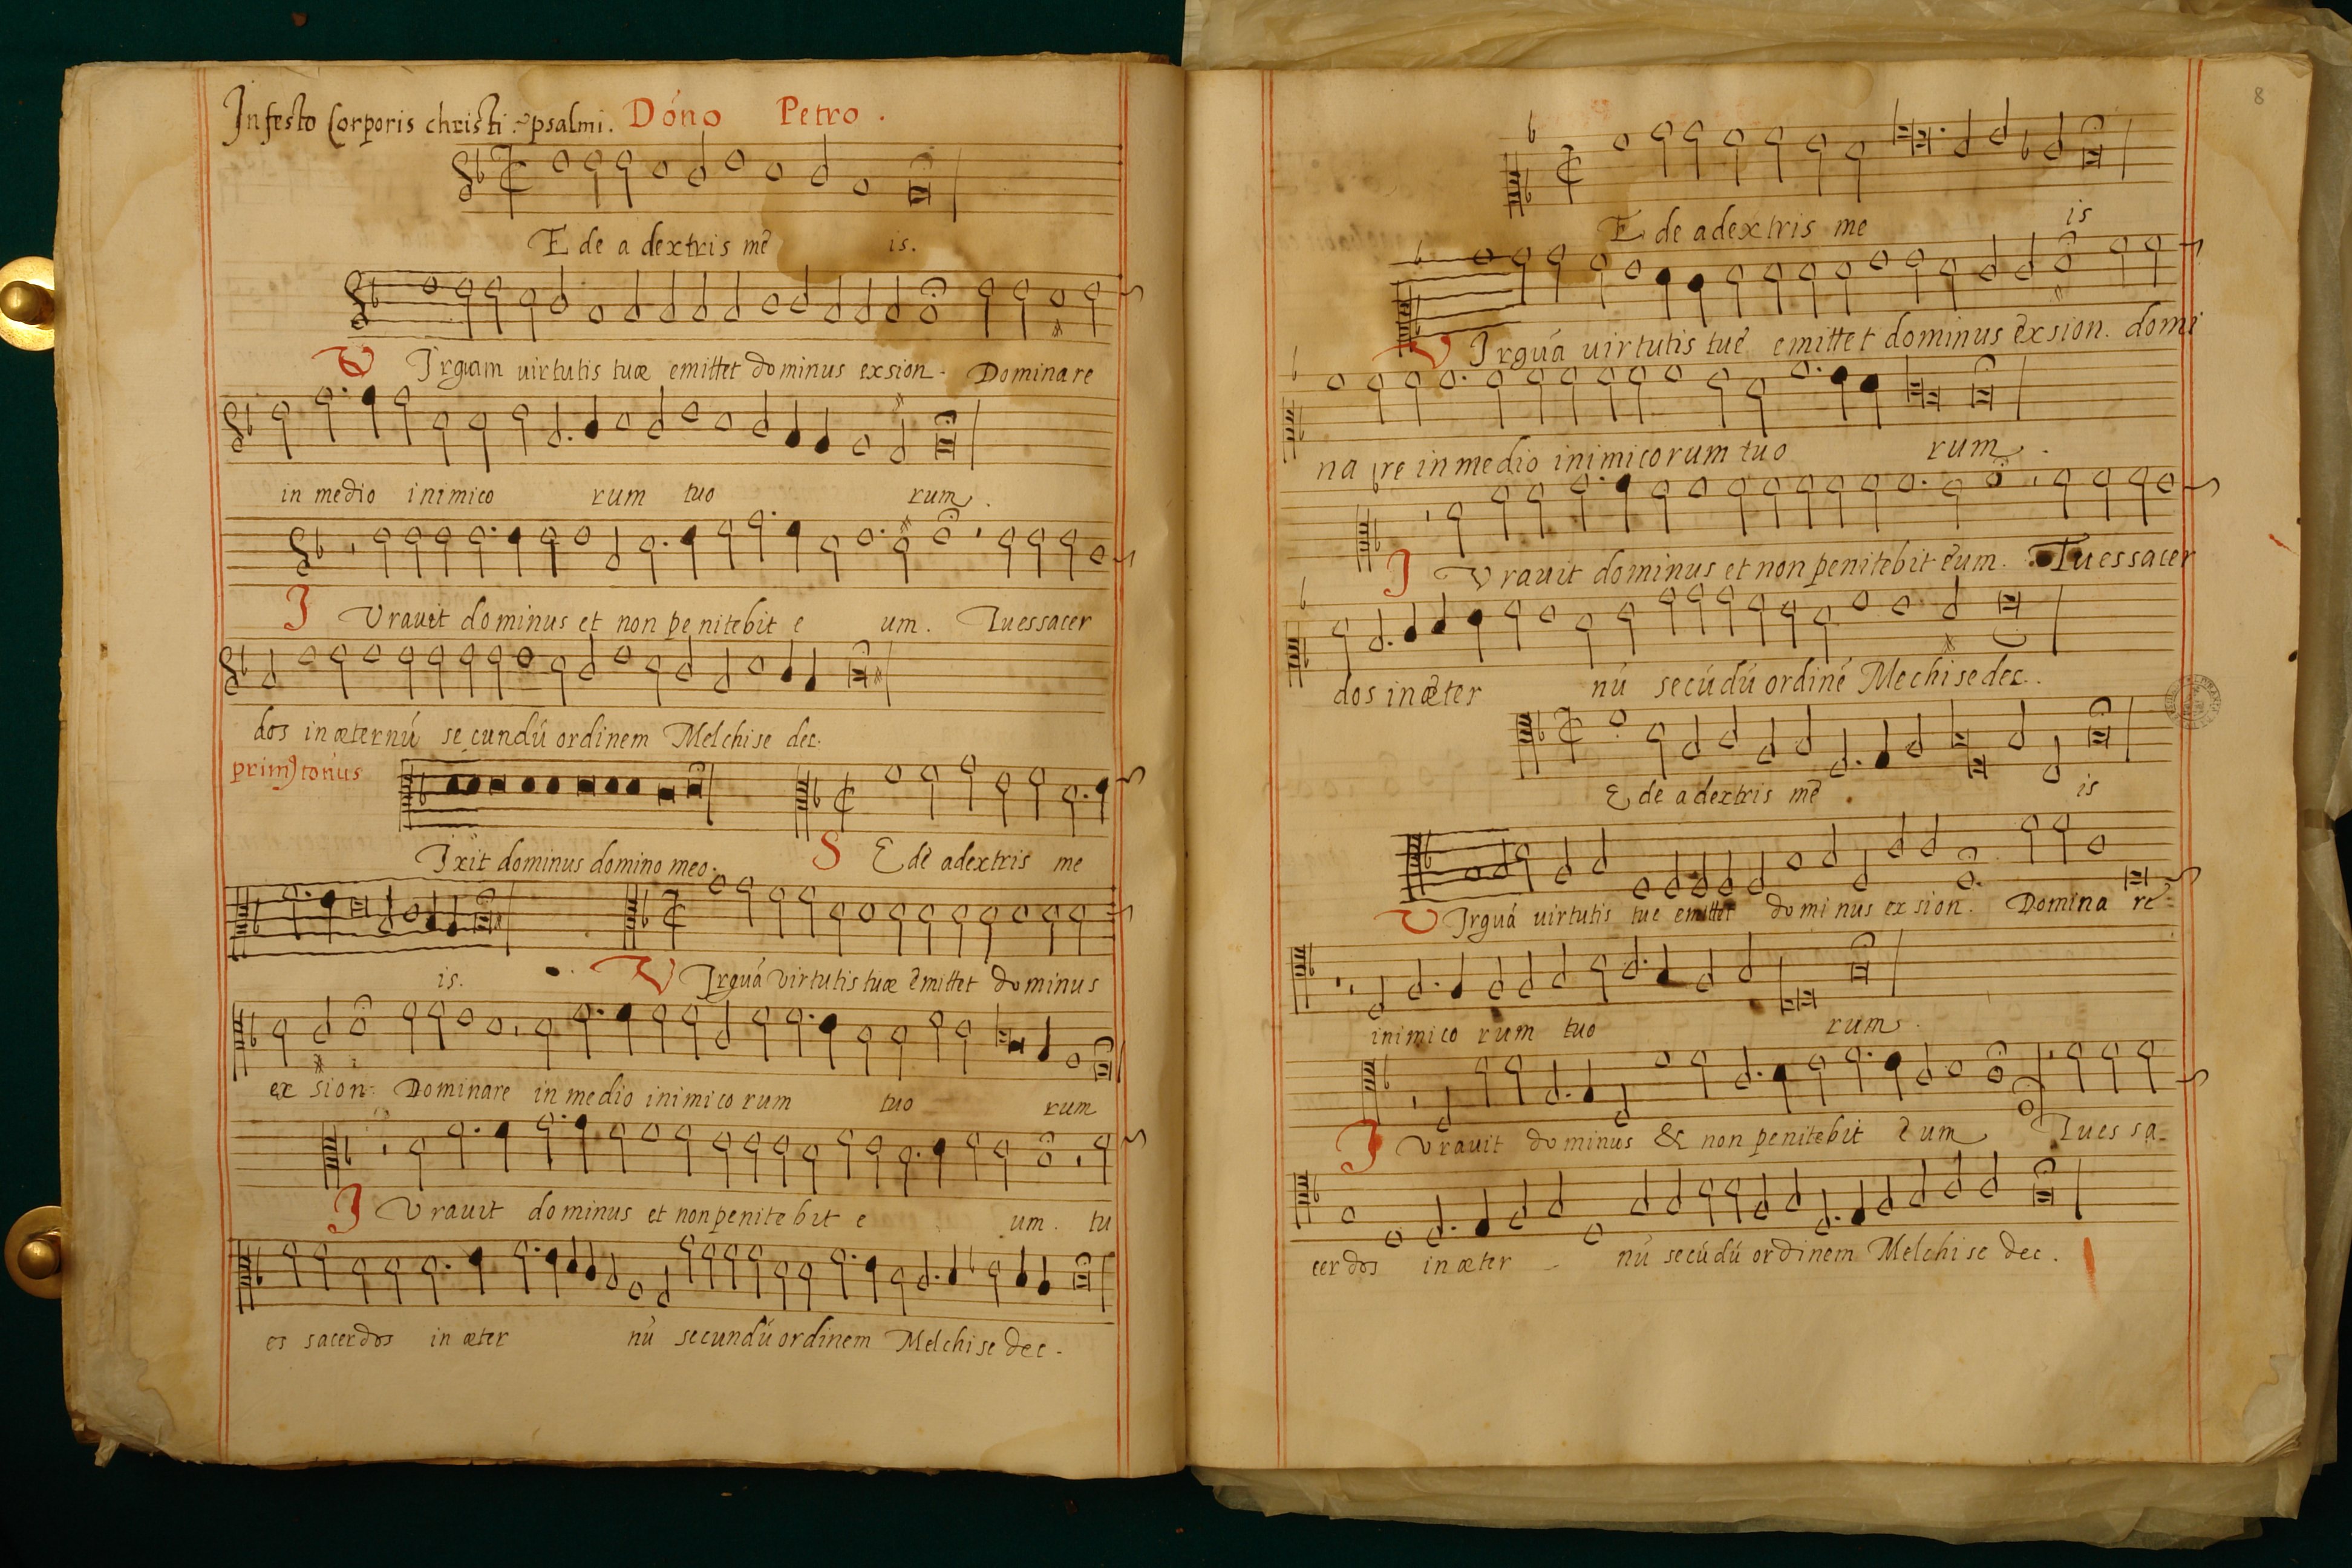 In festo Corporis christi. psalmi. Dóno Petro.
E de a dextris mē is.
V Irgam uirtutis tuæ emittet dominus exsion. Dominare
in medio inimico rum tuo rum.
J Vrauit dominus et non penitebit e um. Tu es sacer
dos in æternú secundú ordinem Melchise dec.
primꝰ tonus
Ixit dominus domino meo. S E de adextris me
is. V Irguá virtutis tuæ emittet dominus
ex sion. Dominare in medio inimico rum tuo rum
J Vrauit dominus et non penite bit e um. tu
es sacerdos in æter nú secundú ordinem Melchise dec.
8
E de adextris me is
V Irguá uirtutis tuē emittet dominus exsion. domi
na re in medio inimicorum tuo rum.
J Vrauit dominus et non penitebit eum. Tu es sacer
dos in æter nú secúdú ordiné Mechisedec.
E de adextris mē is
V Irguá uirtutis tue emittet dominus ex sion. Domina re
inimico rum tuo rum.
J Vrauit dominus & non penitebit eum Tu es sa
cerdos in æter nú secúdú ordinem Melchise dec.